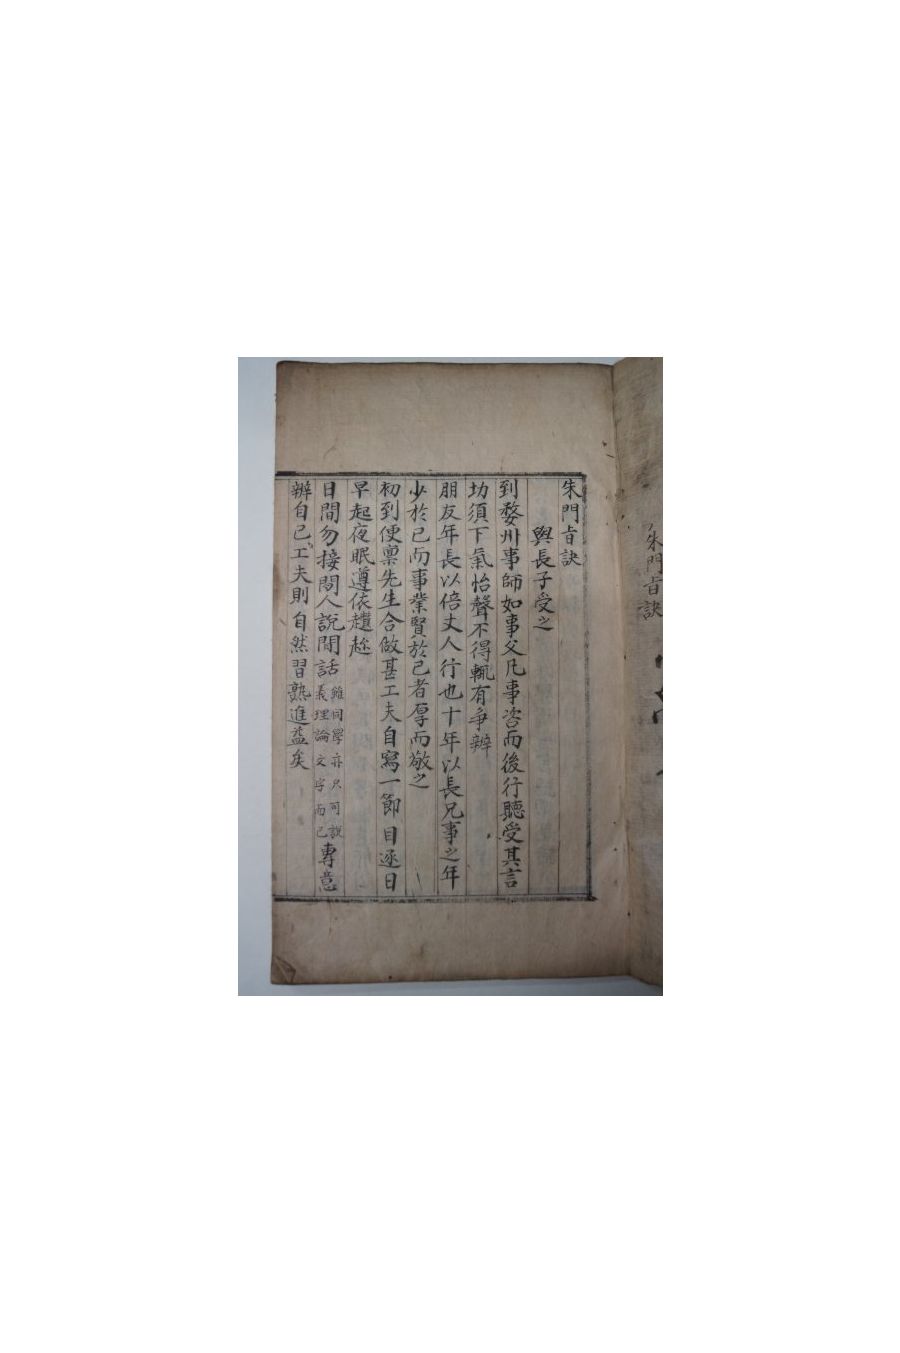 朱門旨訣
朱門旨訣
與長子受之
到婺州事師如事父凡事咨而後行聽受其言
切須下氣怡聲不得輒有爭辨
朋友年長以倍丈人行也十年以長兄事之年
少於己而事業賢於己者厚而敬之
初到便稟先生合做甚工夫自寫一節目逐日
早起夜眠遵依趱趁
日間勿接閒人說閒話雖同學亦只可說義理論文字而已專意
辦自己工夫則自然習熟進益矣